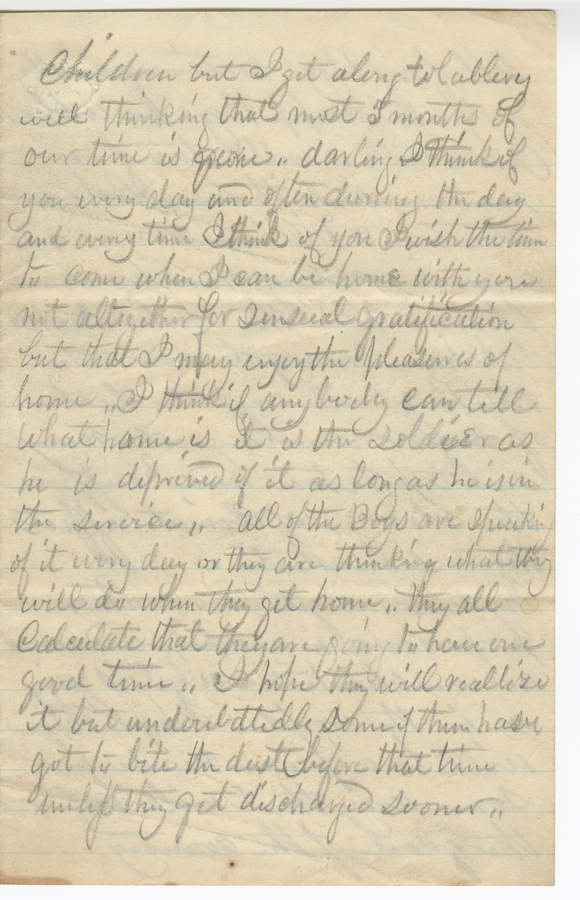 Children but I get along tolablery
well thinking that most 3 months of
our time is gone,, darling I think of
you every day and often during the day
and every time I think of you I wish the time
to come when I can be home with you
not altogether for senseual gratification
but that I may enjoy the pleasures of
home ,, I think if any body can tell
what home is it is the Soldier as
he is deprived of it as long as he is in
the service ,, all of the Boys are speaking
of it every day or they are thinking what they
will do when they get home ,, they all
Calculate that they are going to have one
good time ,, I hope they will reallise
it but undoubttedly some of them have
got to bite the dust before that time
unless they get discharged sooner ,,